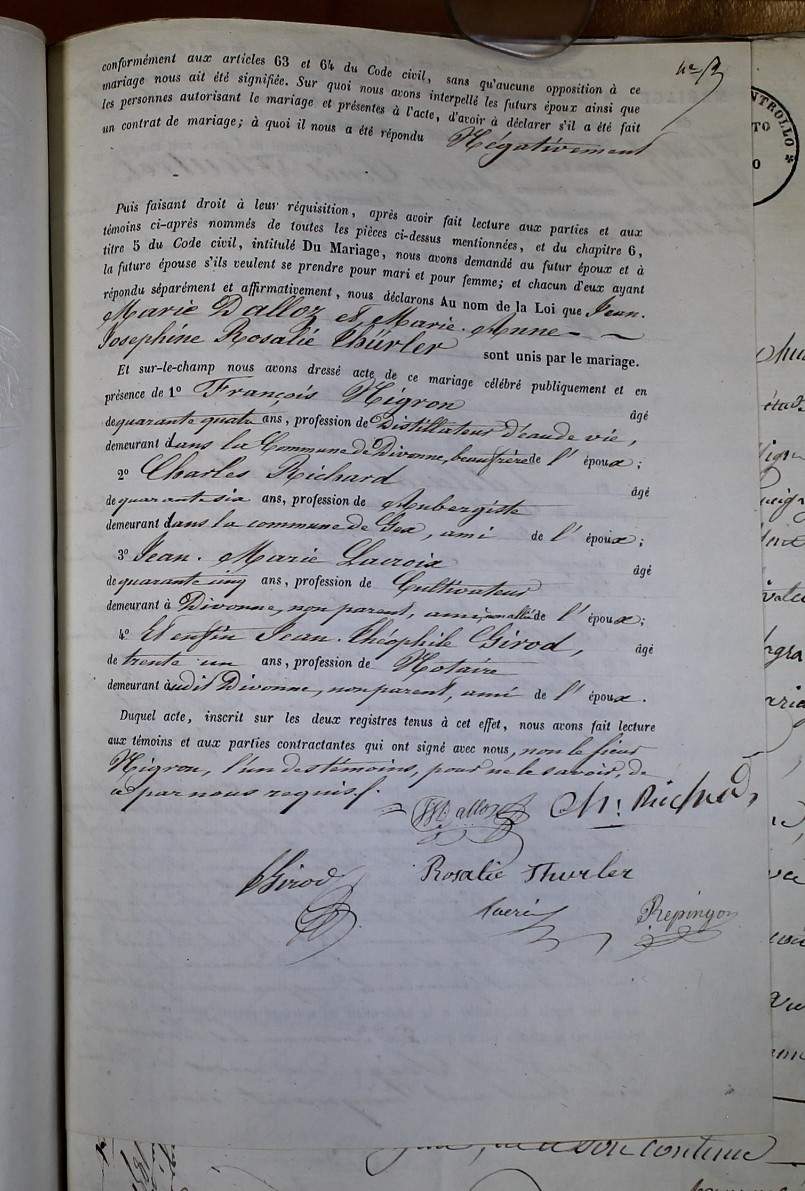 conformément aux articles 63 et 64 du Code civil, sans qu'aucune opposition à ce
mariage nous ait été signifiée. Sur quoi nous avons interpellé les futurs époux ainsi que
les personnes autorisant le mariage et présentes à l'acte, d'avoir à déclarer s'il a été fait
un contrat de mariage; à quoi il nous a été répondu Négativement
Puis faisant droit à leur réquisition, après avoir fait lecture aux parties et aux
témoins ci-après nommés de toutes les pièces ci-dessus mentionnées, et du chapitre 6,
titre 5 du Code civil, intitulé Du Mariage, nous avons demandé au futur époux et à
la future épouse s'ils veulent se prendre pour mari et pour femme; et chacun d'eux ayant
répondu séparément et affirmativement, nous déclarons Au nom de la Loi que Jean.
Marie Dalloz et Marie. Anne - ~
Josephine Rosalie Thürler sont unis par le mariage.
Et sur-le-champ nous avons dressé acte de ce mariage célébré publiquement et en
présence de 1° François Nigron âgé
de quarante quatre ans, profession de Distillateur d'eau de vie,
demeurant dans la Commune de Divonne, beau frère de l'époux;
2° Charles Richard âgé
de quarante six ans, profession de Aubergiste
demeurant dans la commune de Gex, ami de l'époux;
3° Jean. Marie Lacroix âgé
de quarante cinq ans, profession de Cultivateur
demeurant à Divonne, non parent, ami, non allié de l'époux;
4° Et enfin Jean. Théophile Girod, âgé
de trente un ans, profession de Notaire
demeurant audit Divonne, non parent, ami de l'époux.
Duquel acte, inscrit sur les deux registres tenus à cet effet, nous avons fait lecture
aux témoins et aux parties contractantes qui ont signé avec nous, non le sieur
Nigron, l'un des témoins, pour ne le savoir, de
ce par nous requis.
Dalloz Ch: Richard,
Girod Rosalie Thurler
Repingon
NTROLLO
TO
0
son contenu